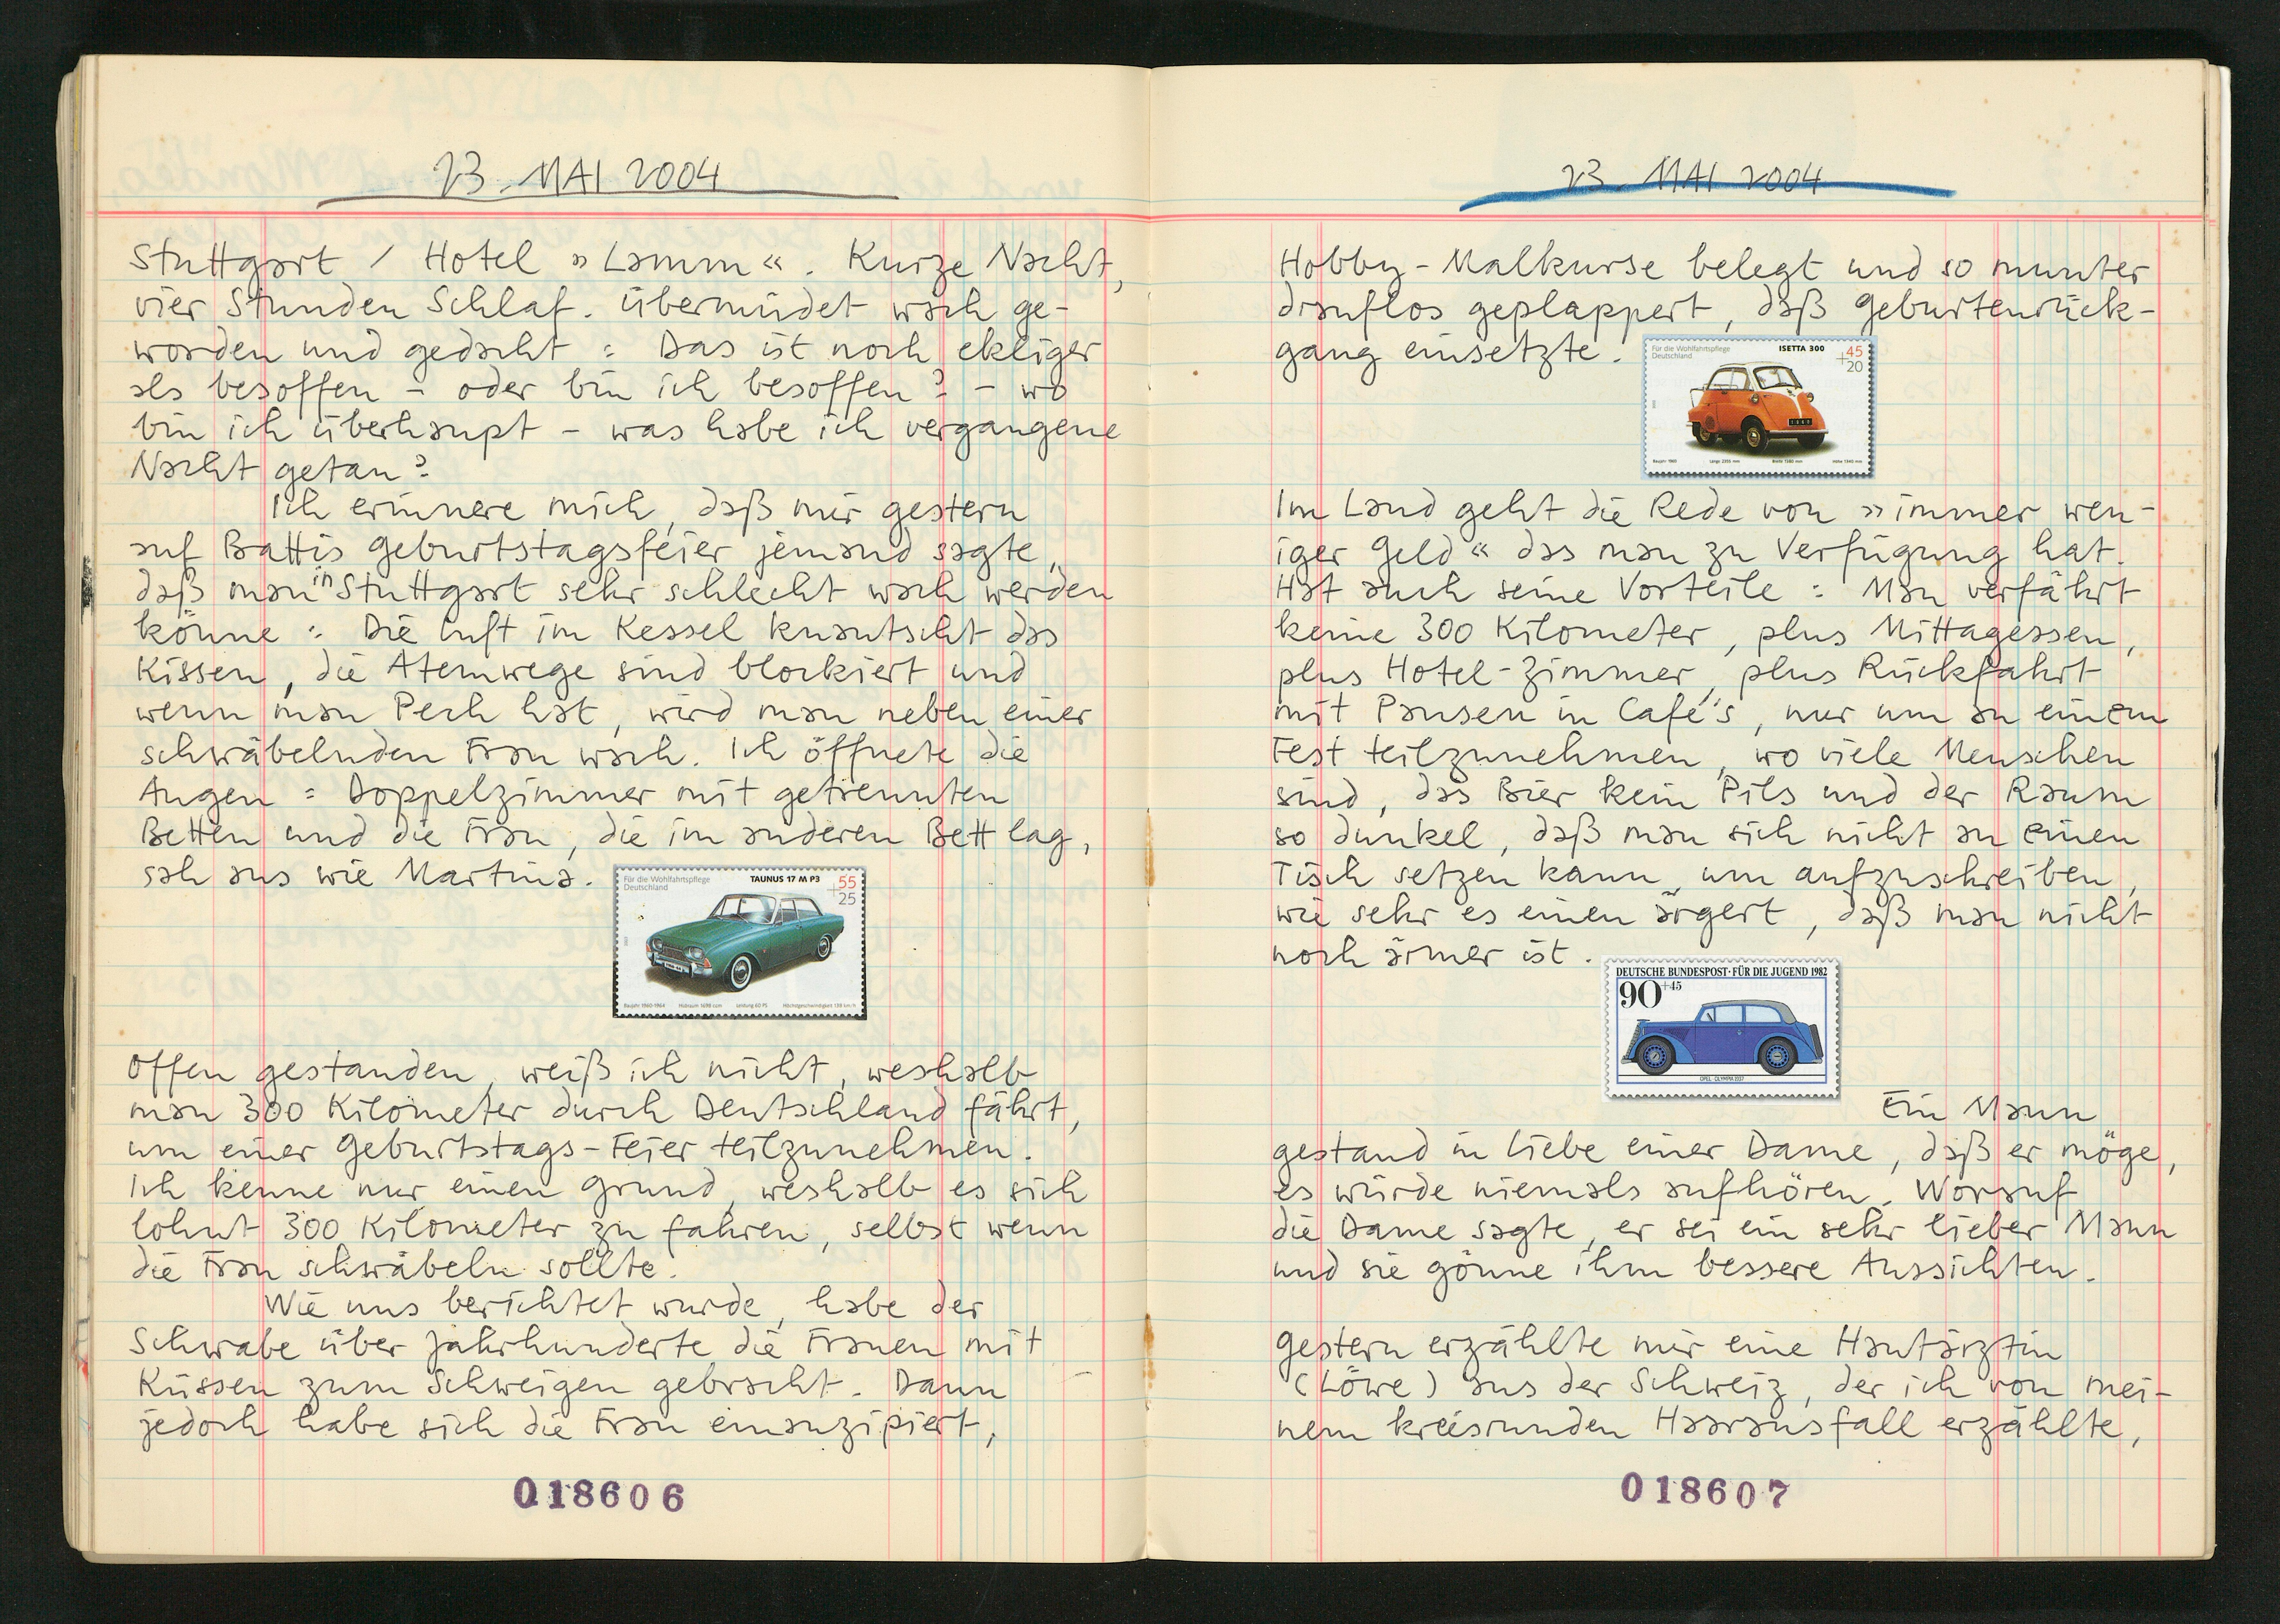 23. MAI 2004
Stuttgart / Hotel »Lamm«. Kurze Nacht,
vier Stunden Schlaf. Übermüdet wach ge-
worden und gedacht: Das ist noch ekliger
als besoffen – oder bin ich besoffen? – wo
bin ich überhaupt – was habe ich vergangene
Nacht getan?
Ich erinnere mich, daß mir gestern
auf Battis Geburtstagsfeier jemand sagte,
daß man in Stuttgart sehr schlecht wach werden
könne: Die Luft im Kessel knautscht das
Kissen, die Atemwege sind blockiert und
wenn man Pech hat, wird man neben einer
schwäbelnden Frau wach. Ich öffnete die
Augen: Doppelzimmer mit getrennten
Betten und die Frau, die im anderen Bett lag,
sah aus wie Martina.
Für die Wohlfahrtspflege
Deutschland
TAUNUS 17 M P3
55
+25
Baujahr 1960-1964 Hubraum 1698 ccm Leistung 60 PS Höchstgeschwindigkeit 138 km/h
Offen gestanden, weiß ich nicht, weshalb
man 300 Kilometer durch Deutschland fährt,
um einer Geburtstags-Feier teilzunehmen.
Ich kenne nur einen Grund, weshalb es sich
lohnt 300 Kilometer zu fahren, selbst wenn
die Frau schwäbeln sollte.
Wie uns berichtet wurde, habe der
Schwabe über Jahrhunderte die Frauen mit
Küssen zum Schweigen gebracht. Dann
jedoch habe sich die Frau emanzipiert,
018606
23. MAI 2004
Hobby-Malkurse belegt und so munter
drauflos geplappert, daß Geburtenrück-
gang einsetzte.
Für die Wohlfahrtspflege
Deutschland
ISETTA 300
45
+20
Baujahr 1960 Länge 2355 mm Breite 1380 mm Höhe 1340 mm
Im Land geht die Rede von »immer wen-
iger Geld« das man zu Verfügung hat.
Hat auch seine Vorteile: Man verfährt
keine 300 Kilometer, plus Mittagessen,
plus Hotel-Zimmer, plus Rückfahrt
mit Pausen in Café's, nur um an einem
Fest teilzunehmen, wo viele Menschen
sind, das Bier kein Pils und der Raum
so dunkel, daß man sich nicht an einen
Tisch setzen kann, um aufzuschreiben,
wie sehr es einen ärgert, daß man nicht
noch ärmer ist.
DEUTSCHE BUNDESPOST·FÜR DIE JUGEND 1982
90+45
OPEL OLYMPIA 1937
Ein Mann
gestand in Liebe einer Dame, daß er möge,
es würde niemals aufhören. Worauf
die Dame sagte, er sei ein sehr lieber Mann
und sie gönne ihm bessere Aussichten.
Gestern erzählte mir eine Hautärztin
(Löwe) aus der Schweiz, der ich von mei-
nem kreisrunden Haarausfall erzählte,
018607